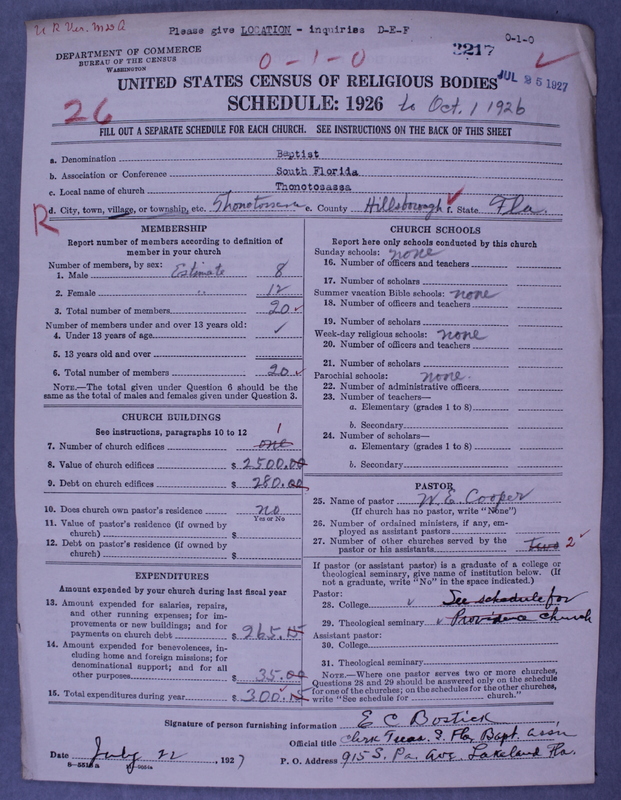 U R Ver. M & A
Please give LOCATION - inquiries D-E-F
0-1-0
3217
DEPARTMENT OF COMMERCE
BUREAU OF THE CENSUS
WASHINGTON
0-1-0
JUL 25 1927
UNITED STATES CENSUS OF RELIGIOUS BODIES
26
SCHEDULE: 1926 to Oct. 1 1926
FILL OUT A SEPARATE SCHEDULE FOR EACH CHURCH. SEE INSTRUCTIONS ON THE BACK OF THIS SHEET
a. Denomination Baptist
b. Association or Conference South Florida
c. Local name of church Thonotosassa
R
d. City, town, village, or township, etc. Thonotosassa e. County Hillsborough f. State Fla.
MEMBERSHIP
Report number of members according to definition of
member in your church
Number of members, by sex:
1. Male Estimate 8
2. Female " 12
3. Total number of members 20
Number of members under and over 13 years old:
4. Under 13 years of age
5. 13 years old and over
6. Total number of members 20
NOTE.—The total given under Question 6 should be the
same as the total of males and females given under Question 3.
CHURCH BUILDINGS
See instructions, paragraphs 10 to 12
7. Number of church edifices one 1
8. Value of church edifices $ 2500.00
9. Debt on church edifices $ 280.00
10. Does church own pastor's residence no
Yes or No
11. Value of pastor's residence (if owned by
church) $
12. Debt on pastor's residence (if owned by
church) $
EXPENDITURES
Amount expended by your church during last fiscal year
13. Amount expended for salaries, repairs,
and other running expenses; for im-
provements or new buildings; and for
payments on church debt $ 265.15
14. Amount expended for benevolences, in-
cluding home and foreign missions; for
denominational support; and for all
other purposes $ 35.00
15. Total expenditures during year $ 300.15
CHURCH SCHOOLS
Report here only schools conducted by this church
Sunday schools: none
16. Number of officers and teachers
17. Number of scholars
Summer vacation Bible schools: none
18. Number of officers and teachers
19. Number of scholars
Week-day religious schools: none
20. Number of officers and teachers
21. Number of scholars
Parochial schools: none.
22. Number of administrative officers
23. Number of teachers—
a. Elementary (grades 1 to 8)
b. Secondary
24. Number of scholars—
a. Elementary (grades 1 to 8)
b. Secondary
PASTOR
25. Name of pastor W. E. Cooper
(If church has no pastor, write "None")
26. Number of ordained ministers, if any, em-
ployed as assistant pastors
27. Number of other churches served by the
pastor or his assistants two 2
If pastor (or assistant pastor) is a graduate of a college or
theological seminary, give name of institution below. (If
not a graduate, write "No" in the space indicated.)
Pastor:
28. College See schedule for
29. Theological seminary Providence church
Assistant pastor:
30. College
31. Theological seminary
NOTE.—Where one pastor serves two or more churches,
Questions 28 and 29 should be answered only on the schedule
for one of the churches; on the schedules for the other churches,
write "See schedule for church."
Signature of person furnishing information E C Bostick
Official title Clerk Treas. S. Fla. Bapt. Assn
Date July 22, 1927 P. O. Address 915 S. Pa. Ave. Lakeland Fla.